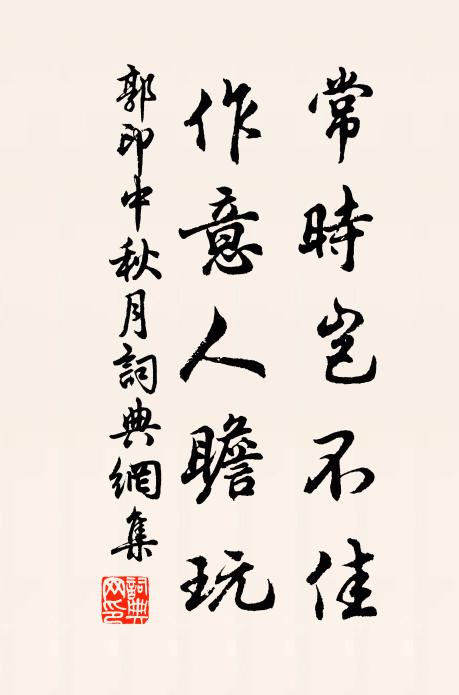 常時岂不佳
作意人瞻玩
郭印中秋月詞典網集
詞典網印